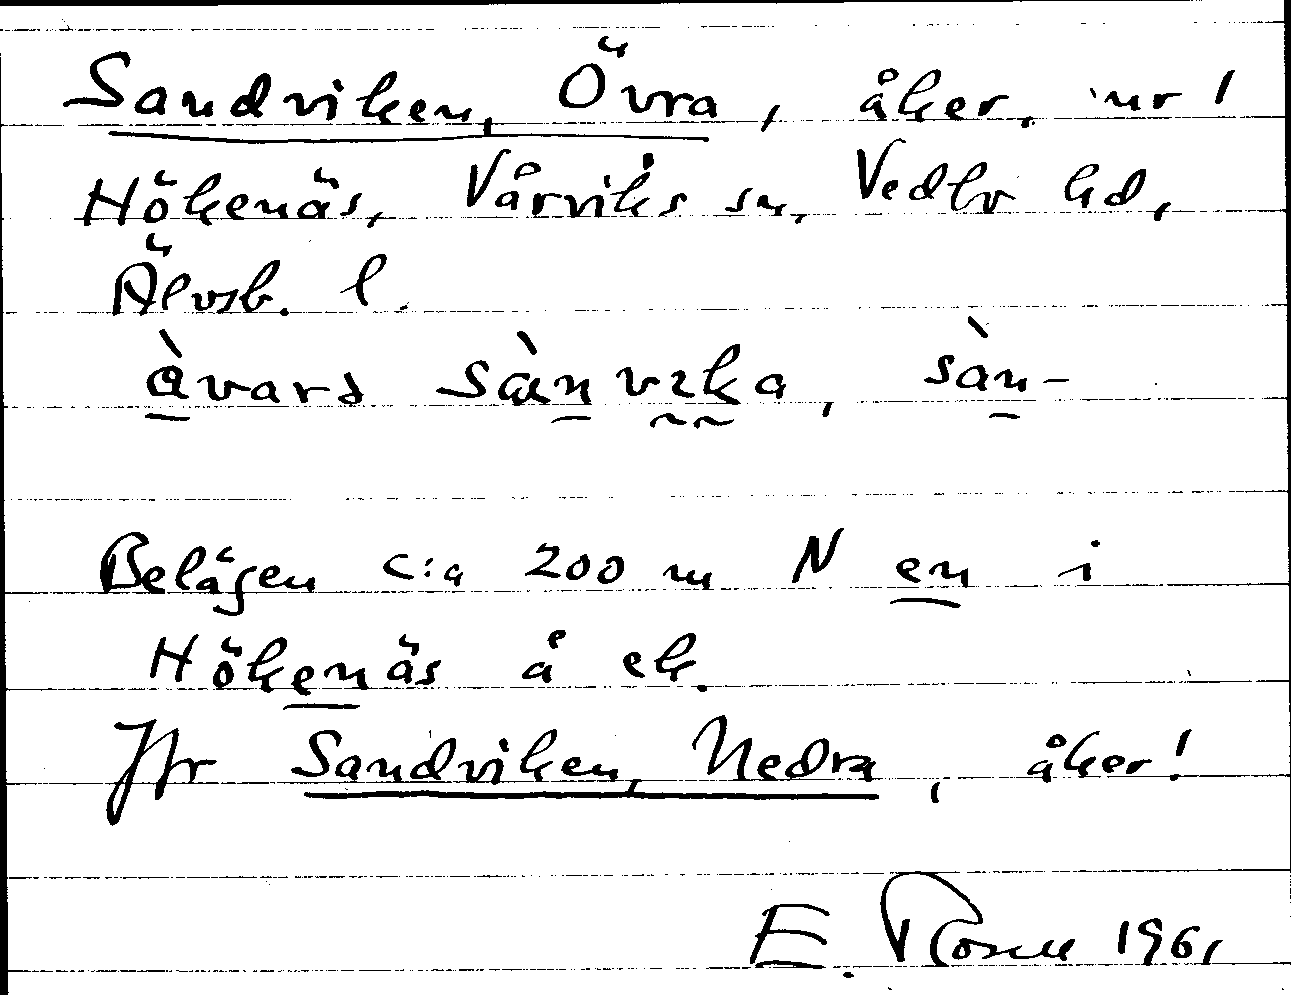 Sandviken, Övra, åker, nr 1
Hökenäs, Vårviks sn, Vedbo hd,
Älvsb. l.
àvars sànvıka, sàn-
Belägen c:a 200 m N en i
Hökenäs å ek.
Jfr Sandviken, Nedra, åker!
E. Rosell 1961